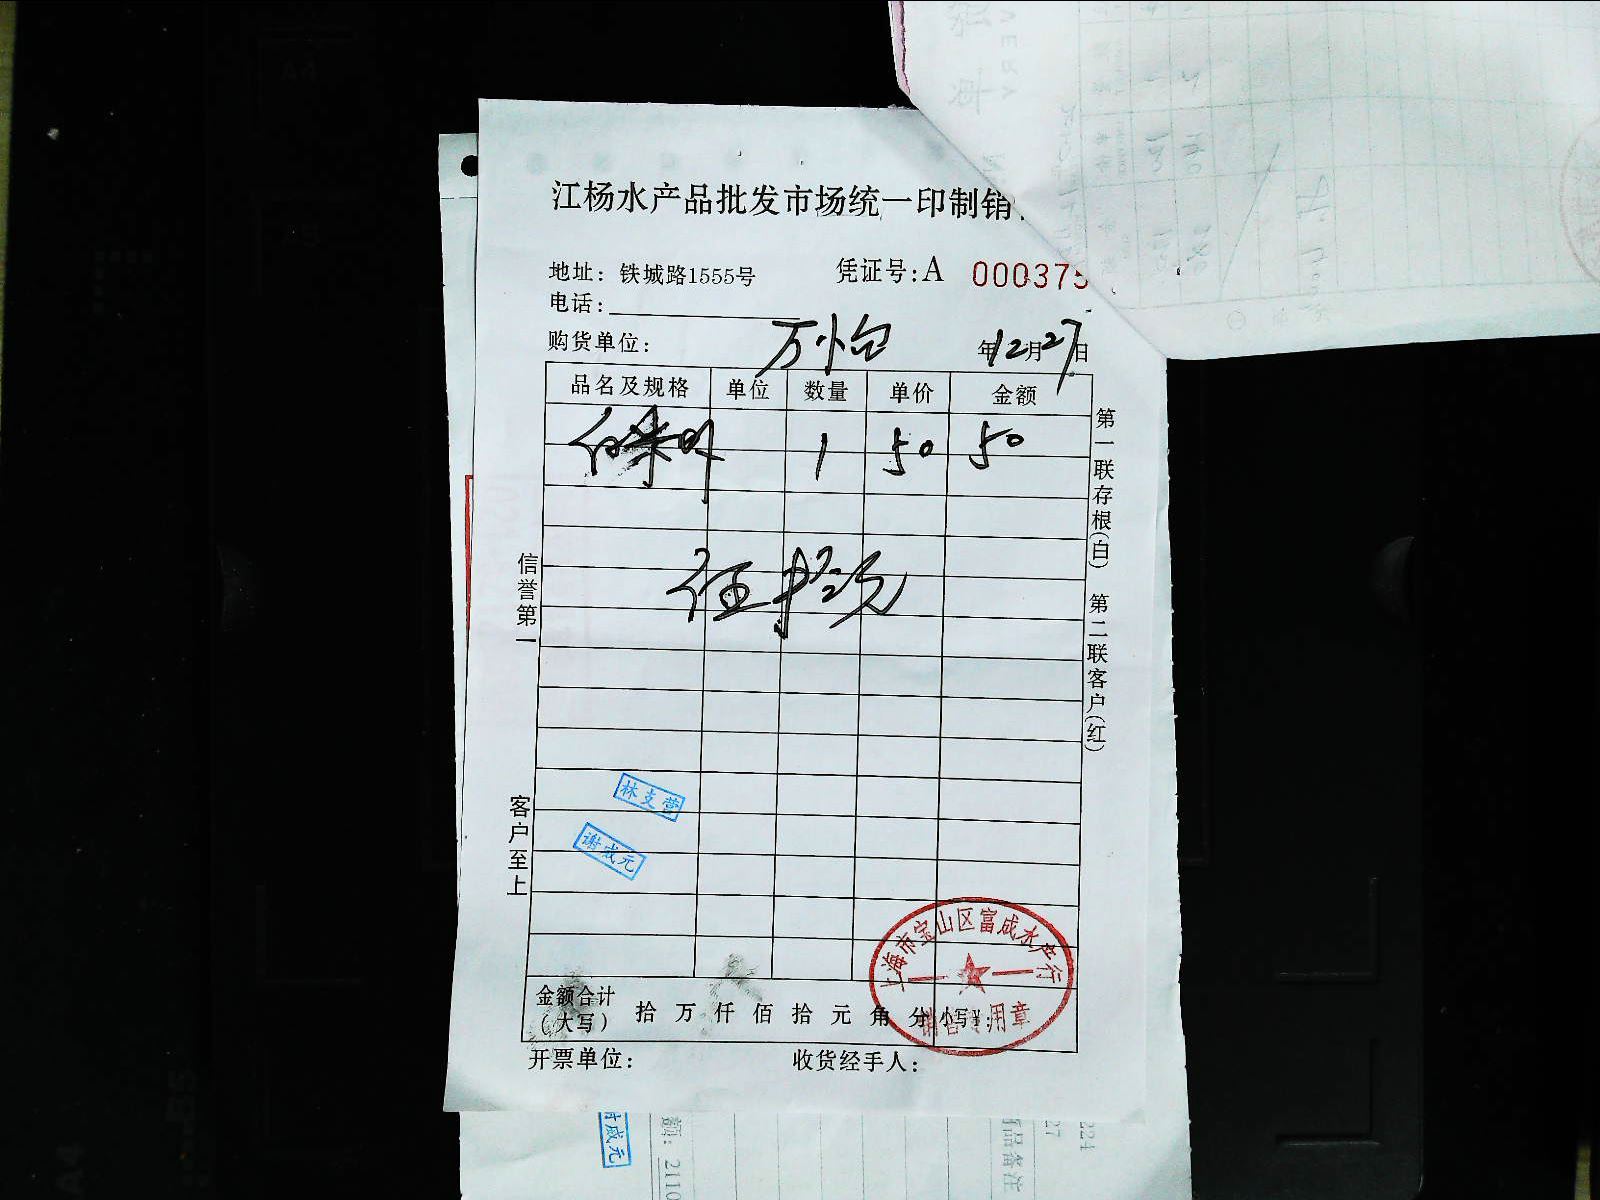 江杨水产品批发市场统一印制销
地址：铁城路1555号
凭证号:A 000375
电话:
购货单位：
年12月27日
品名及规格 单位 数量 单价 金额
1 50 50
伍拾元
信誉第一
客户至上
第一联存根(白) 第二联客户(红)
林支营
谢成元
上海市宝山区富成水产行
销售专用章
金额合计
(大写) 拾 万 仟 佰 拾 元 角 分 小写¥:
开票单位： 收货经手人：
谢成元
额: 2110
商品备注
27
224